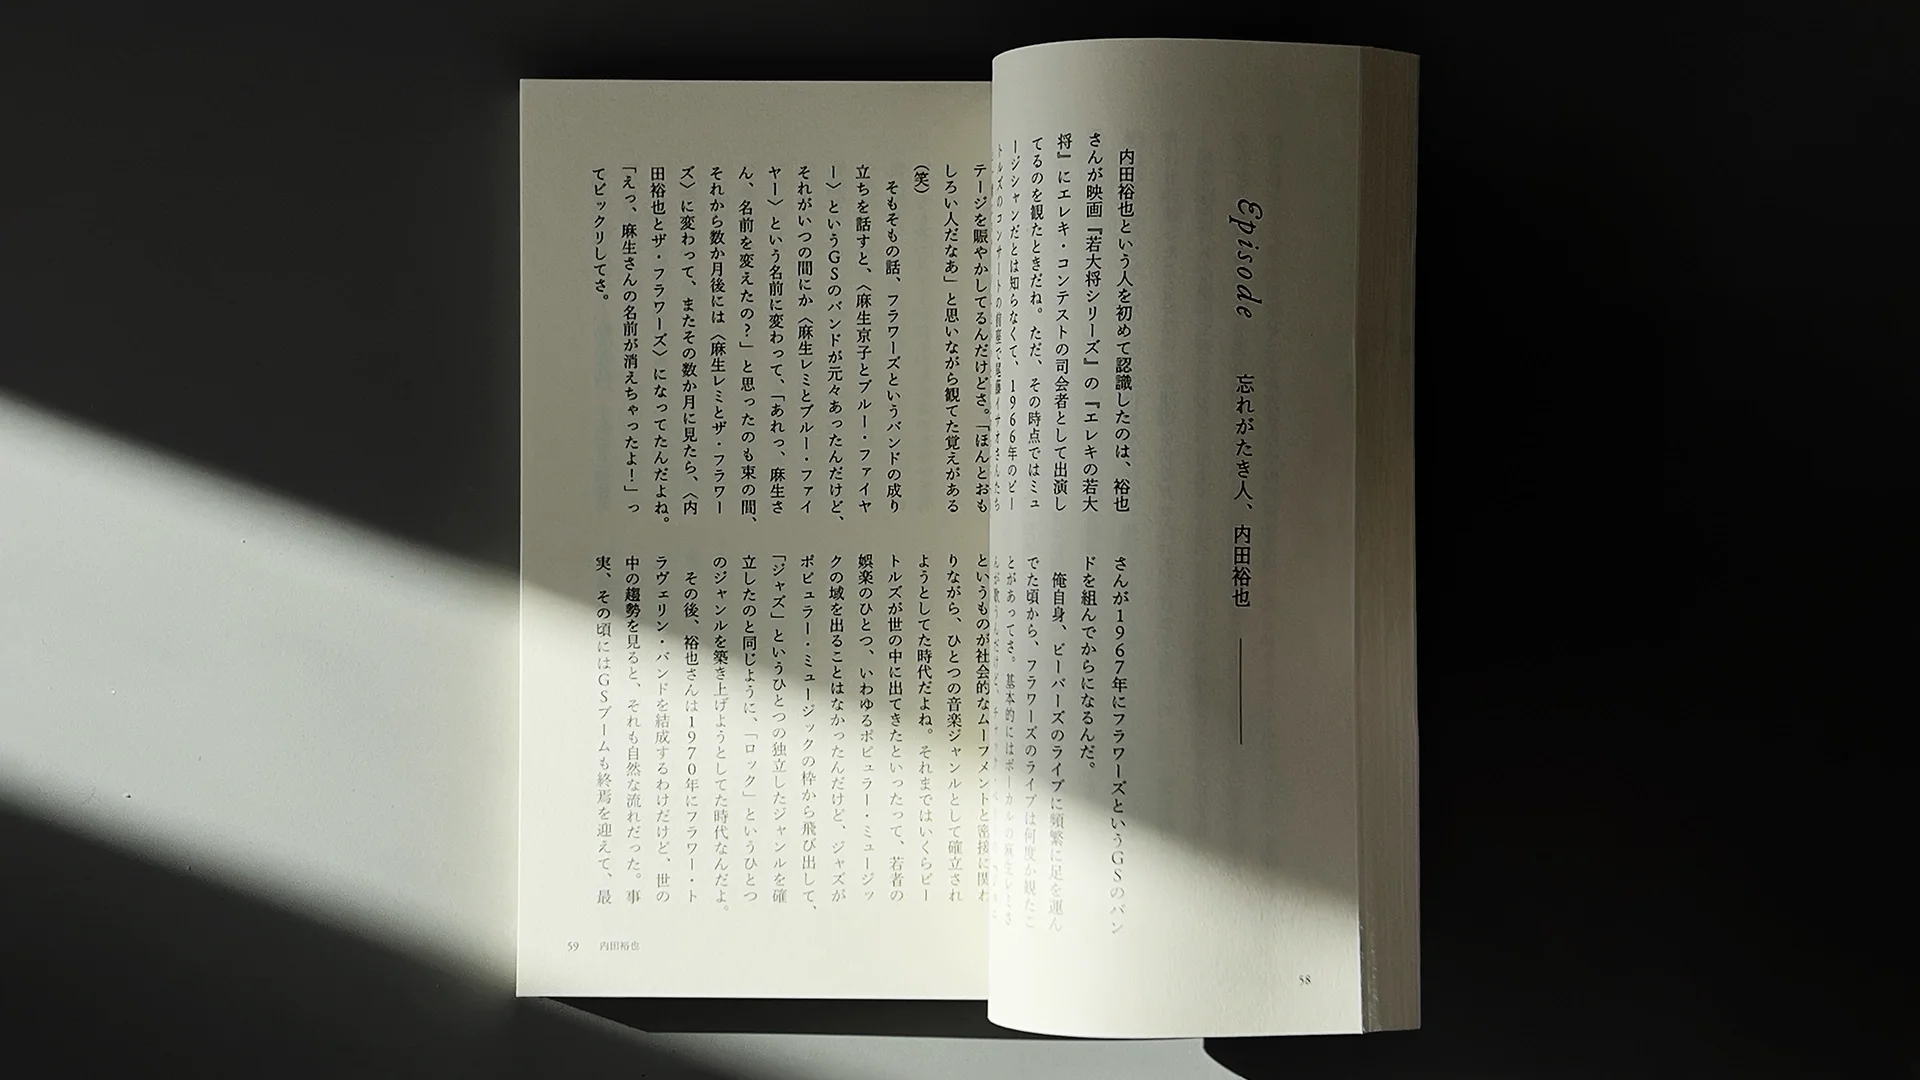 Episode 忘れがたき人、内田裕也
内田裕也という人を初めて認識したのは、裕也
さんが映画『若大将シリーズ』の『エレキの若大
将』にエレキ・コンテストの司会者として出演し
てるのを観たときだね。ただ、その時点ではミュ
ージシャンだとは知らなくて、1966年のビー
トルズのコンサートの前座で尾藤イサオさんたち
さんが1967年にフラワーズというGSのバン
ドを組んでからになるんだ。
俺自身、ビーバーズのライブに頻繁に足を運ん
でた頃から、フラワーズのライブは何度か観たこ
とがあってさ。基本的にはボーカルの麻生レミさ
んが歌うんだけど、
58
テージを賑やかしてるんだけどさ。「ほんとおも
しろい人だなあ」と思いながら観てた覚えがある
(笑)
そもそもの話、フラワーズというバンドの成り
立ちを話すと、〈麻生京子とブルー・ファイヤ
ー〉というGSのバンドが元々あったんだけど、
それがいつの間にか〈麻生レミとブルー・ファイ
ヤー〉という名前に変わって、「あれっ、麻生さ
ん、名前を変えたの?」と思ったのも束の間、
それから数か月後には〈麻生レミとザ・フラワー
ズ〉に変わって、またその数か月に見たら、〈内
田裕也とザ・フラワーズ〉になってたんだよね。
「えっ、麻生さんの名前が消えちゃったよ!」っ
てビックリしてさ。
というものが社会的なムーブメントと密接に関わ
りながら、ひとつの音楽ジャンルとして確立され
ようとしてた時代だよね。それまではいくらビー
トルズが世の中に出てきたといったって、若者の
娯楽のひとつ、いわゆるポピュラー・ミュージッ
クの域を出ることはなかったんだけど、ジャズが
ポピュラー・ミュージックの枠から飛び出して、
「ジャズ」というひとつの独立したジャンルを確
立したのと同じように、「ロック」というひとつ
のジャンルを築き上げようとしてた時代なんだよ。
その後、裕也さんは1970年にフラワー・ト
ラヴェリン・バンドを結成するわけだけど、世の
中の趨勢を見ると、それも自然な流れだった。事
実、その頃にはGSブームも終焉を迎えて、最
59 内田裕也